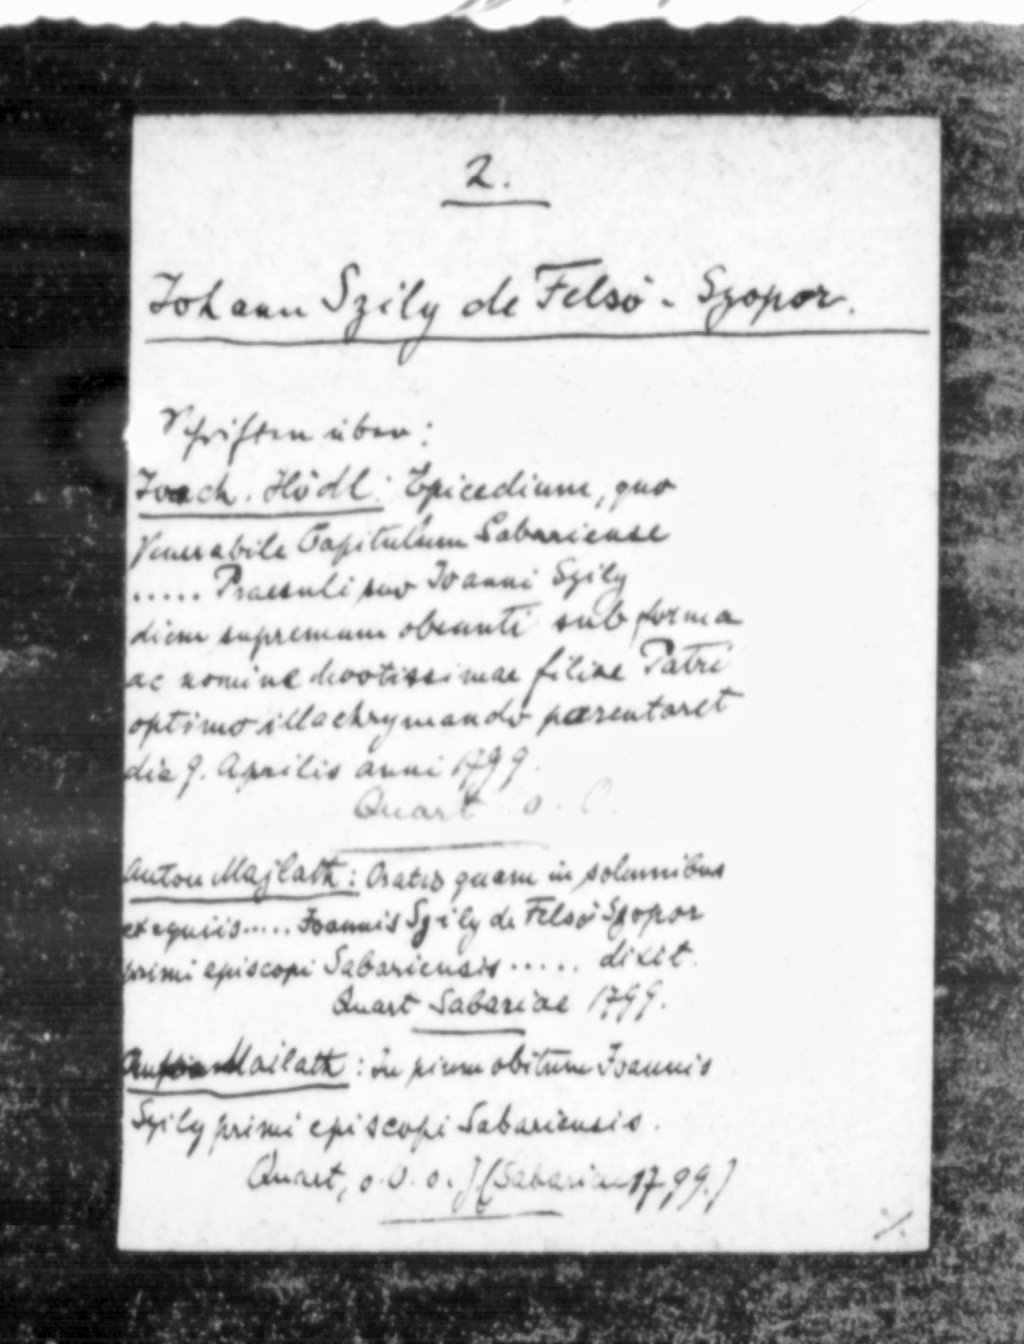 2.
Johann Szily de Felsö-Szopor.
Schriften über:
Joach. Hödl: Epicedium, quo
Venerabile Capitulum Sabariense
..... Praesuli suo Joanni Szily
diem supremum obeunti sub forma
ac nomine devotissimae filiae Patri
optimo illachrymando parentaret
die 9. Aprilis anni 1799.
Quart o. O.
Anton Majlath: Oratio quam in solemnibus
exequiis..... Joannis Szily de Felsö Szopor
primi episcopi Sabariensis ..... dixit.
Quart Sabariae 1799.
Mailath: In pium obitum Joannis
Szily primi episcopi Sabariensis.
Quart, o. O. o. J (Sabariae 1799.)